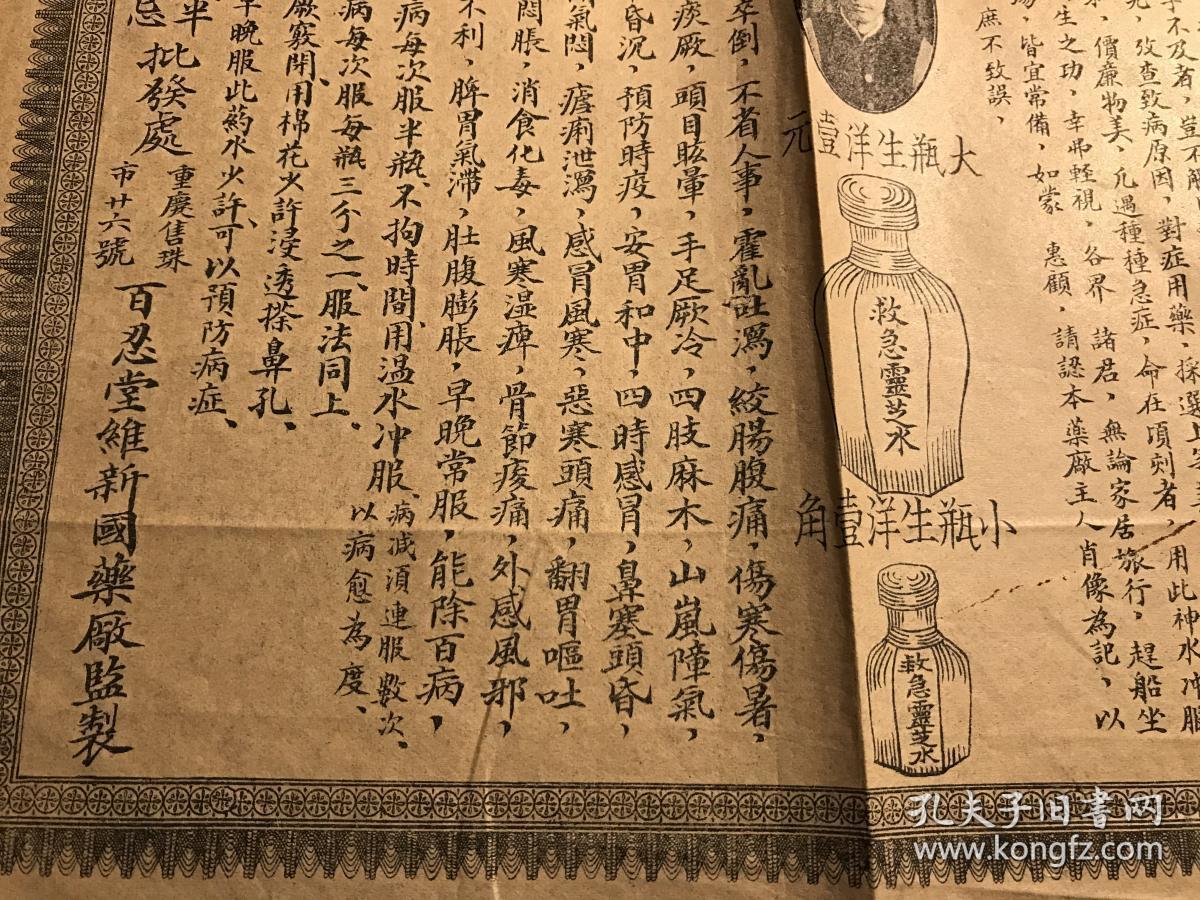 字不及者，豈不
攷查致病原因，對症用藥，採選上
價廉物美、凢遇種種急症，命在頃刻者，用此神水冲服
生之功，幸弗輕視，各界　諸君，無論家居旅行，趕船坐
皆宜常備，如蒙　惠顧，請認本藥廠主人肖像為記，以
庶不致誤，
大瓶生洋壹元
救急靈芝水
小瓶生洋壹角
救急靈芝水
卒倒，不省人事，霍亂吐瀉，絞腸腹痛，傷寒傷暑，
痰厥，頭目眩暈，手足厥冷，四肢麻木，山嵐障氣，
昏沉，預防時疫，安胃和中，四時感冒，鼻塞頭昏，
氣悶，瘧痢泄瀉，感冒風寒，惡寒頭痛，翻胃嘔吐，
悶脹，消食化毒，風寒湿痺，骨節痠痛，外感風邪，
不利，脾胃氣滯，肚腹膨脹，早晚常服，能除百病，
病每次服半瓶、不拘時間、用温水冲服、病减須連服數次、以病愈為度、
病每次服每瓶三分之一、服法同上、
厥竅閉、用棉花少許浸透搽鼻孔、
早晚服此葯水少許、可以預防病症、
批發處
重慶售珠市廿六號
百忍堂維新國藥廠監製
孔夫子旧书网
www.kongfz.com